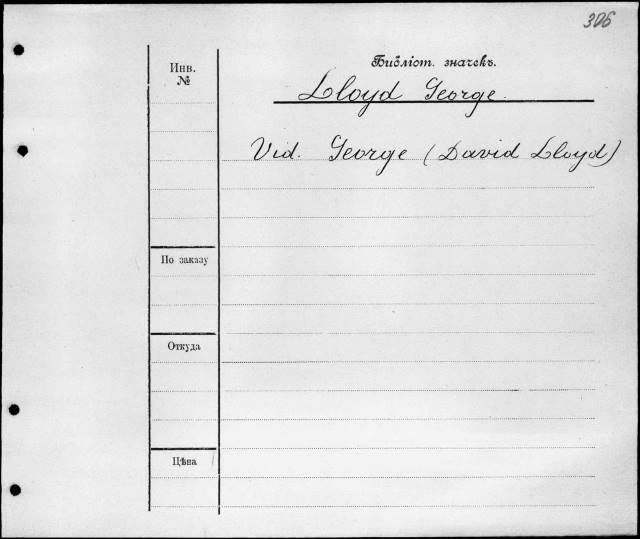 306
Инв.
№
Библіот. значекъ.
Lloyd George.
Vid. George (David Lloyd)
По заказу
Откуда
Цѣна